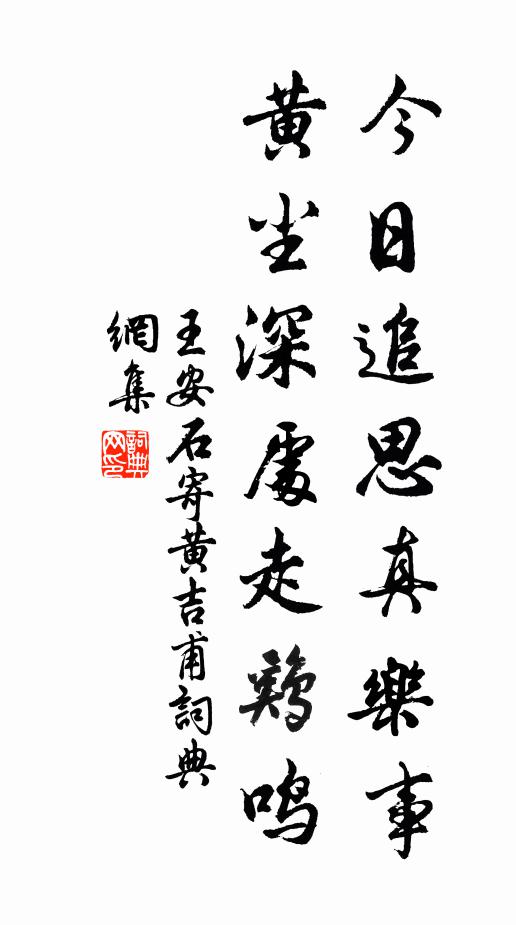 今日追思真樂事
黃尘深處走鷄鳴
王安石寄黃吉甫詞典
網集
詞典
网印